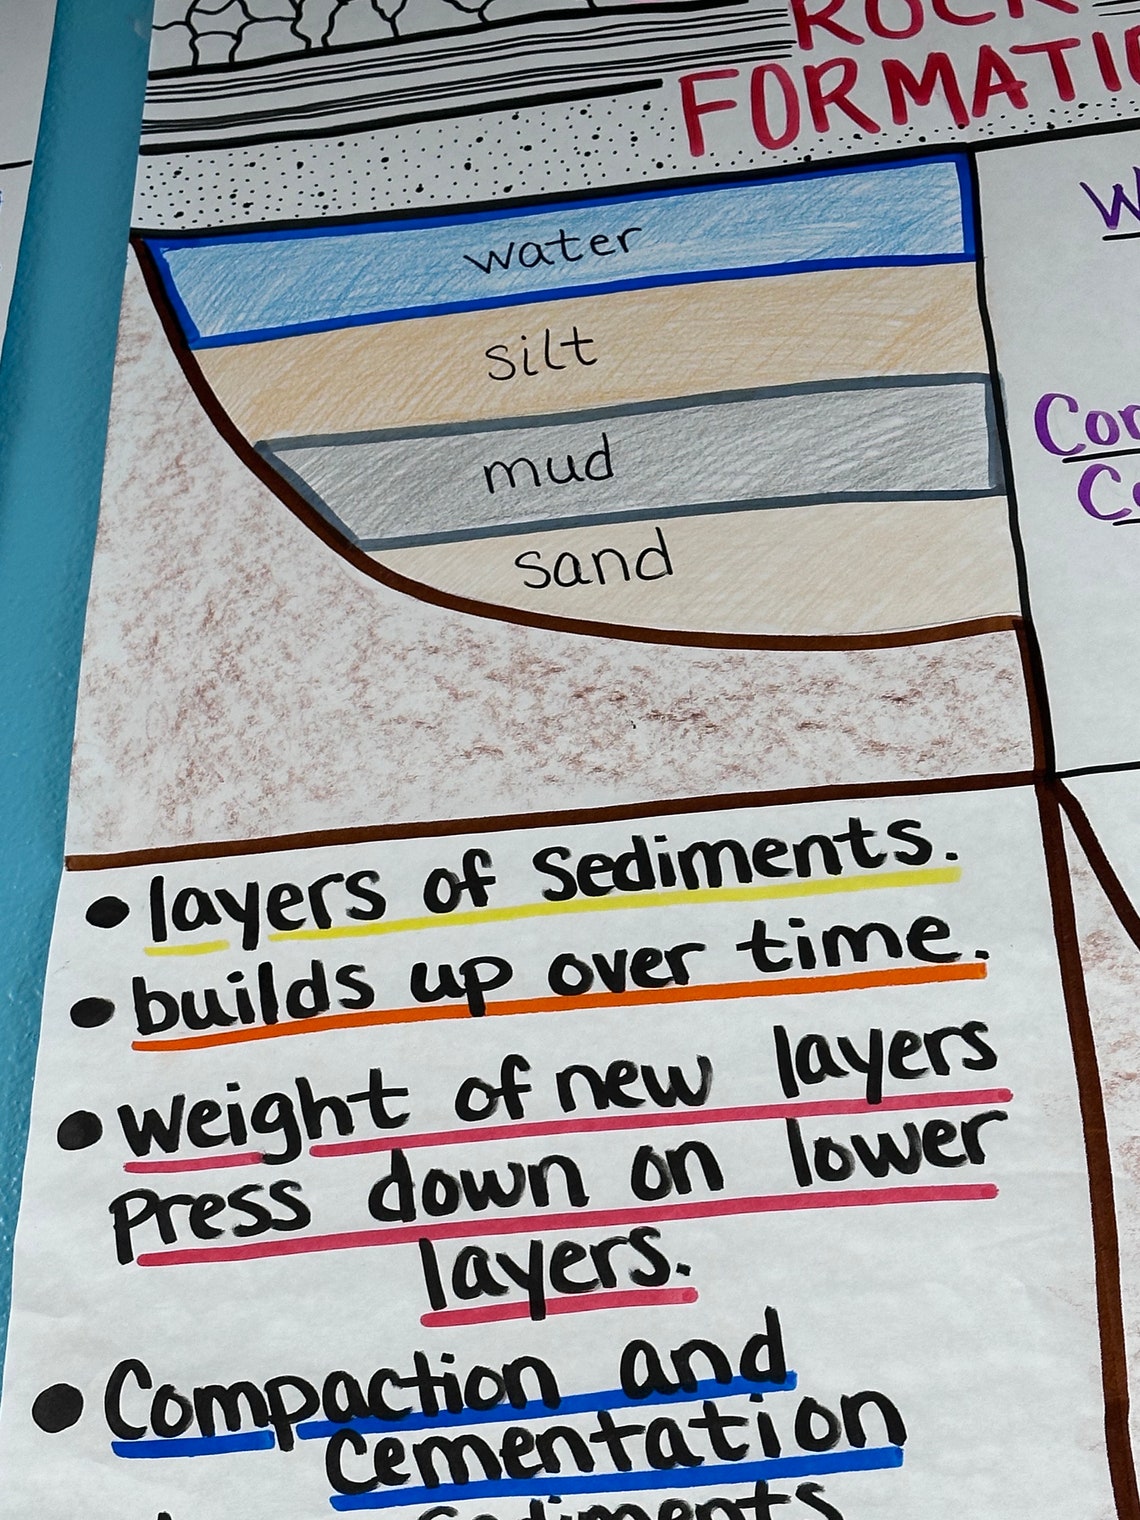 ROCK
water
silt
mud
sand
• layers of Sediments.
• builds up over time.
• Weight of new layers
Press down on lower
layers.
• Compaction and
Cementation
Sediments